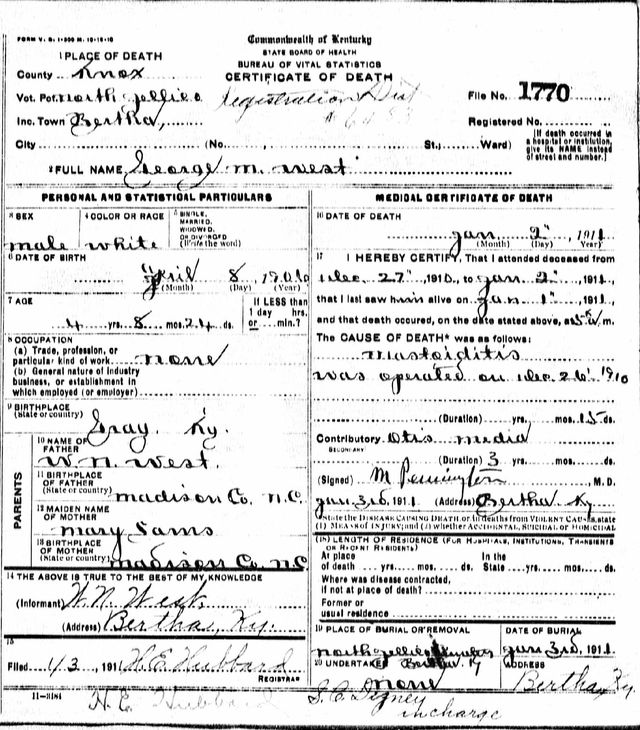 FORM V. S. 1-500 M. 10-15-10
Commonwealth of Kentucky
STATE BOARD OF HEALTH
BUREAU OF VITAL STATISTICS
CERTIFICATE OF DEATH
1 PLACE OF DEATH
County Knox
Vot. Pct. north Jellico
Registration Dist
File No. 1770
Inc. Town Bertha,
Registered No.
City (No. St.; Ward)
[If death occurred in a hospital or institution, give its NAME instead of street and number.]
2 FULL NAME George M. West
PERSONAL AND STATISTICAL PARTICULARS
3 SEX
male
4 COLOR OR RACE
white
5 SINGLE, MARRIED, WIDOWED, OR DIVORCED (Write the word)
6 DATE OF BIRTH
April 8, 1906
(Month) (Day) (Year)
7 AGE
4 yrs. 8 mos. 24 ds.
If LESS than 1 day hrs. or min.?
8 OCCUPATION
(a) Trade, profession, or particular kind of work. none
(b) General nature of industry business, or establishment in which employed (or employer)
9 BIRTHPLACE
(State or country) Gray. Ky.
PARENTS
10 NAME OF FATHER
W. N. West.
11 BIRTHPLACE OF FATHER
(State or country) madison Co. N.C.
12 MAIDEN NAME OF MOTHER
Mary Sams
13 BIRTHPLACE OF MOTHER
(State or country) madison Co. N.C.
14 THE ABOVE IS TRUE TO THE BEST OF MY KNOWLEDGE
(Informant) W. N. West.
(Address) Bertha, Ky.
15
Filed 1/3, 1911 H. E. Hubbard
REGISTRAR
11-3184
H. E. Hubbard
MEDICAL CERTIFICATE OF DEATH
16 DATE OF DEATH
Jan. 2", 1911
(Month) (Day) (Year)
17 I HEREBY CERTIFY, That I attended deceased from
Dec. 27", 1910, to Jan 2", 1911,
that I last saw him alive on Jan 1", 1911,
and that death occured, on the date stated above, at 5 a m.
The CAUSE OF DEATH* was as follows:
mastoiditis
was operated on Dec. 26" 1910
(Duration) yrs. mos. 15 ds.
Contributory Otis media
SECONDARY
(Duration) 3 yrs. mos. ds.
(Signed) M Pennington, M.D.
Jan. 3rd. 1911 (Address) Bertha Ky
*State the DISEASE CAUSING DEATH or in deaths from VIOLENT CAUSES, state (1) MEANS OF INJURY; and (2) whether ACCIDENTAL, SUICIDAL or HOMICIDAL
LENGTH OF RESIDENCE (FOR HOSPITALS, INSTITUTIONS, TRANSIENTS OR RECENT RESIDENTS)
At place of death yrs. mos. ds.
In the State yrs. mos. ds.
Where was disease contracted, if not at place of death?
Former or usual residence
19 PLACE OF BURIAL OR REMOVAL
north Jellico
Bertha Ky
DATE OF BURIAL
Jan 3rd, 1911
20 UNDERTAKER
none
ADDRESS
Bertha, Ky.
in charge